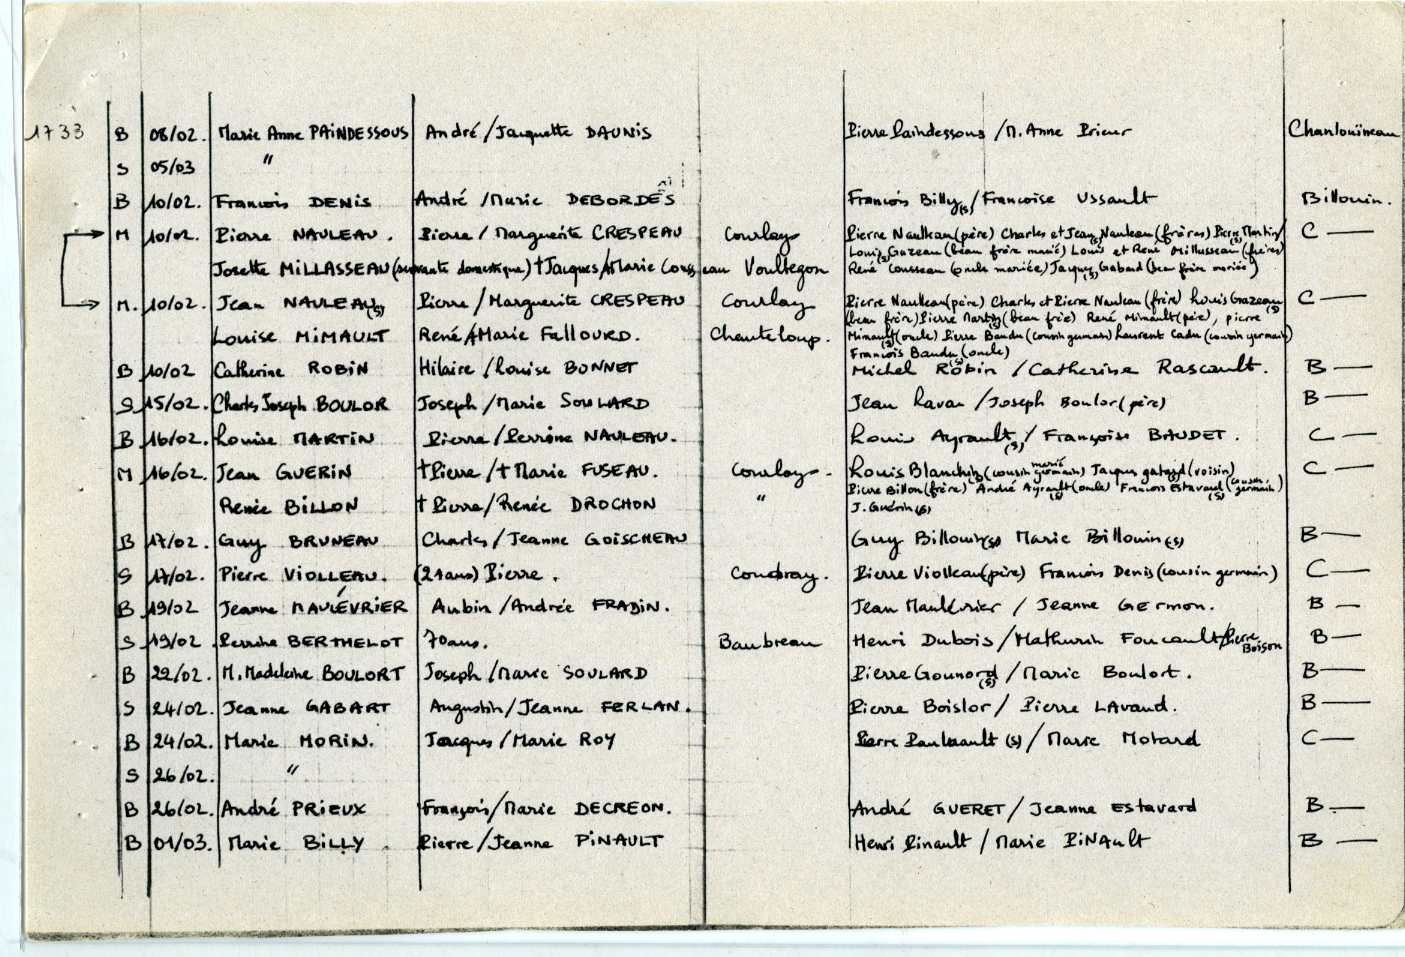 1733 B 08/02. Marie Anne PAINDESSOUS André/Jacquette DAUNIS Pierre Paindessous /M. Anne Prieur Chanlouineau
S 05/03 "
B 10/02. Francois DENIS André /Marie DEBORDES Francois Billy(s)/Francoise Ussault Billouin.
M 10/02. Pierre NAULEAU. Pierre/Marguerite CRESPEAU Courlay Pierre Nauleau(père) Charles et Jean(s) Nauleau(frères) Pierre(s) Martin/ C —
Louis(s) Gazeau (beau frère marié) Louis et René Millasseau (frères)
Josette MILLASSEAU (servante domestique) †Jacques/†Marie Cousseau Voultegon René Cousseau (oncle mariée) Jacques(s) Gabard (beau frère mariée)
M. 10/02. Jean NAULEAU(s) Pierre/Marguerite CRESPEAU Courlay Pierre Nauleau(père) Charles et Pierre Nauleau (frère) Louis Gazeau(s) C —
(beau frère) Pierre Martin(s) (beau frère) René Mimault(père), pierre
Louise MIMAULT René/†Marie FALLOURD. Chanteloup. Mimault(s)(oncle) Pierre Baudu (cousin germain) Laurent Cadu (cousin germain)
Francois Baudu(s) (oncle)
B 10/02 Catherine ROBIN Hilaire /Louise BONNET Michel Robin /Catherine Rascault. B —
S 15/02. Charles Joseph BOULOR Joseph /Marie SOULARD Jean Lavau /Joseph Boulor(père) B —
B 16/02. Louise MARTIN Pierre/Perrine NAULEAU. Louis Ayrault(s)/ Françoise BAUDET. C —
M 16/02. Jean GUERIN †Pierre/†Marie FUSEAU. Courlay - Louis Blanchin(s)(cousin germain marié) Jacques gabard(s)(voisin) C —
Pierre Billon(frère) André Ayrault(s)(oncle) Francois Estavard(s) (cousin germain)
Renée BILLON †Pierre/Renée DROCHON " J. Guérin(s)
B 17/02. Guy BRUNEAU Charles/Jeanne GOISCHEAU Guy Billouin(s) Marie Billouin(s) B —
S 17/02. Pierre VIOLLEAU. (21ans) Pierre. Coudray. Pierre Violleau(père) Francois Denis(cousin germain) C —
B 19/02 Jeanne MAULÉVRIER Aubin/Andrée FRADIN. Jean Maulévrier / Jeanne Germon. B —
S 19/02 Perrine BERTHELOT 70ans. Baubreau Henri Dubois/Mathurin Foucault/Pierre Boison B —
B 22/02. M. Madeleine BOULORT Joseph/Marie SOULARD Pierre Gounord(s) / Marie Boulort. B —
S 24/02. Jeanne GABART Augustin/Jeanne FERLAN. Pierre Boislor/ Pierre Lavaud. B —
B 24/02. Marie MORIN. Jacques/Marie ROY Pierre (s)/ Marie Motard C —
S 26/02. "
B 26/02. André PRIEUX François/Marie DECREON. André GUERET/ Jeanne Estavard B. —
B 01/03. Marie BILLY Pierre/Jeanne PINAULT Henri Pinault / Marie PINAult B —